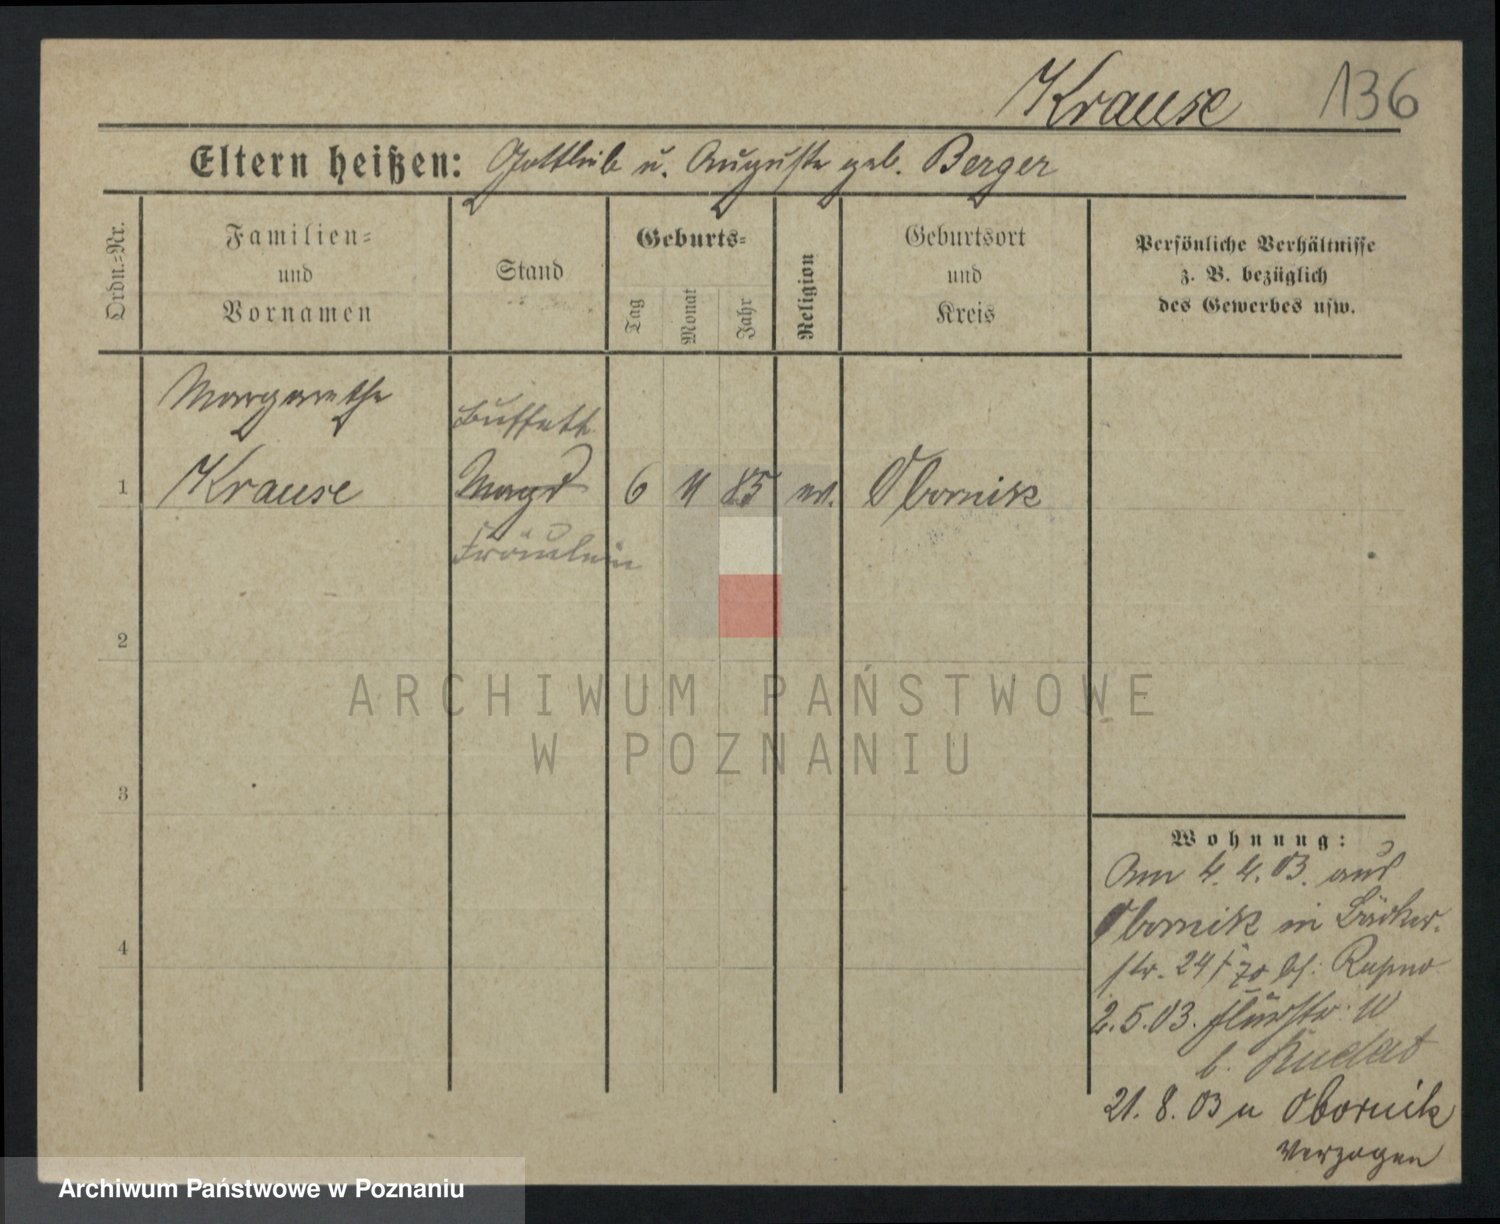 Krause 136
Eltern heißen: Gottlieb u. Auguste geb. Berger
Ordn.-Nr.
Familien-
und
Vornamen
Stand
Geburts-
Tag
Monat
Jahr
Religion
Geburtsort
und
Kreis
Persönliche Verhältnisse
z. B. bezüglich
des Gewerbes usw.
Margarethe
Buffett
1 Krause Magd 6 11 85 ev. Obornik
Fräulein
2
3
4
Wohnung:
Am 4.4.03. aus
Obornik in Bäcker-
str. 24 I bs:
2.5.03. Flurstr.
b. Kudat
21.8.03 n Obornik
verzogen
ARCHIWUM PAŃSTWOWE
W POZNANIU
Archiwum Państwowe w Poznaniu